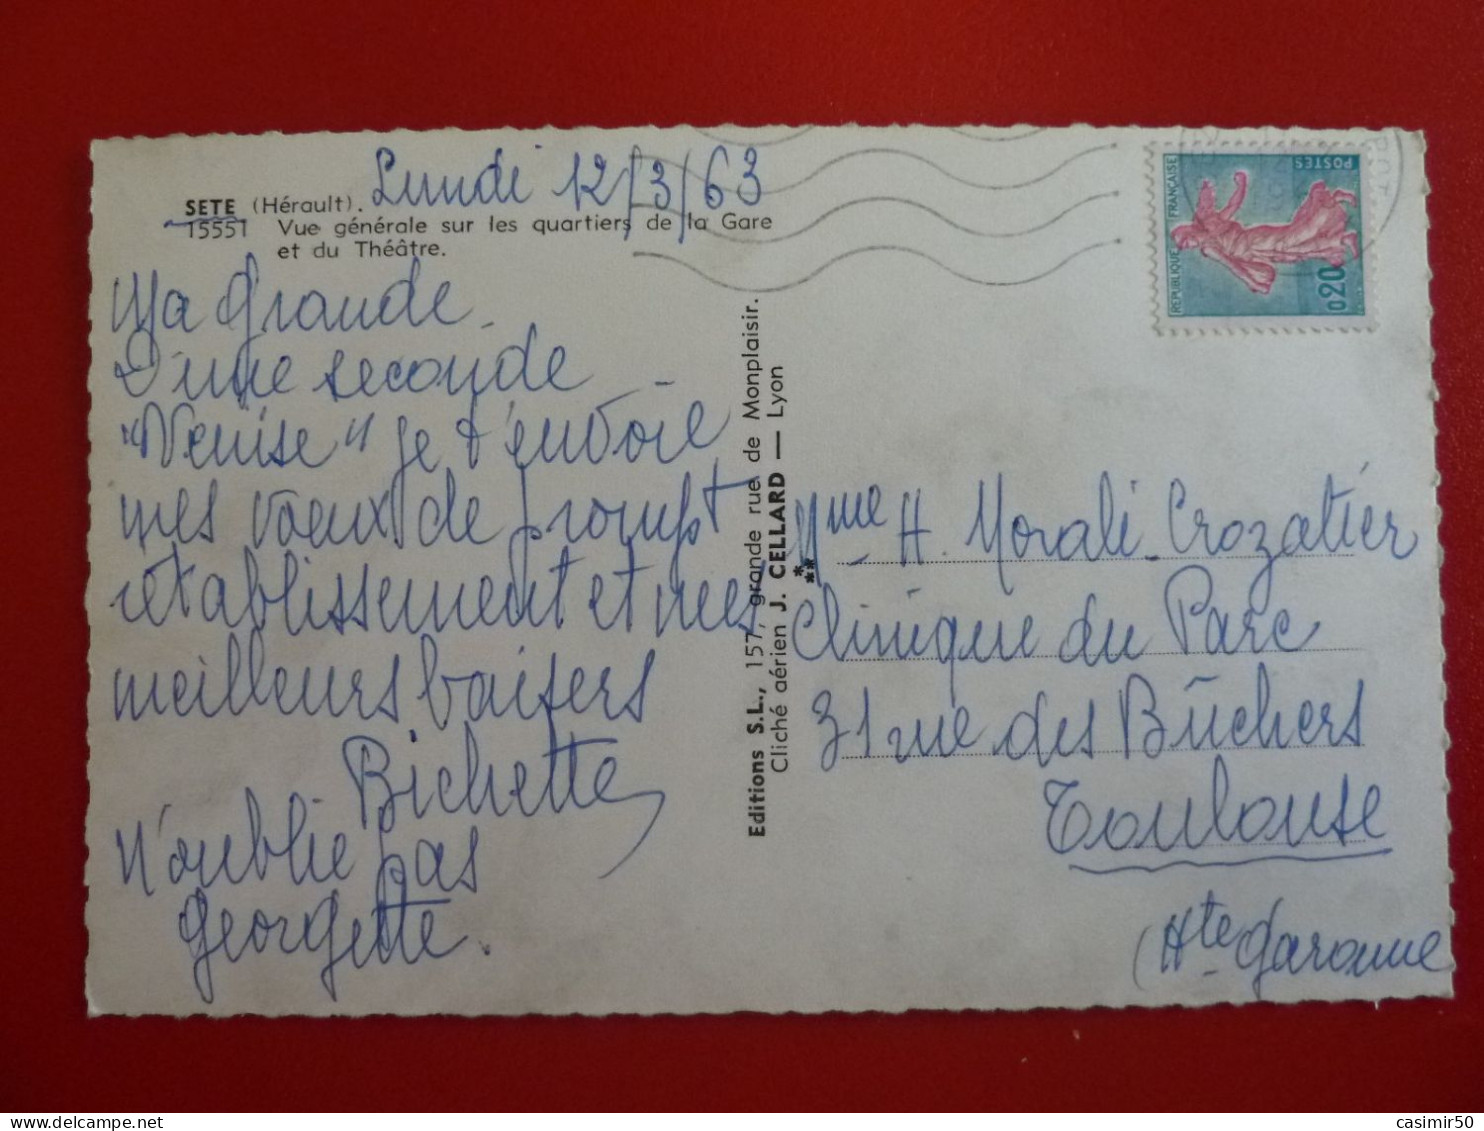 SETE (Hérault).
Lundi 12/3/63
15551 Vue générale sur les quartiers de la Gare
et du Théâtre.
Ma Grande
D'une seconde
"Venise" je t'envoie
mes voeux de prompt
rétablissement et mes
meilleurs baisers
Bichette
N'oublie pas
Georgette.
Editions S.L., 157, grande rue de Monplaisir.
Cliché aérien J. CELLARD — Lyon
REPUBLIQUE FRANÇAISE
POSTES
0,20
Mme H. Morali-Crozatier
Clinique du Parc
31 rue des Bûchers
Toulouse
(Hte Garonne
delcampe.net
casimir50